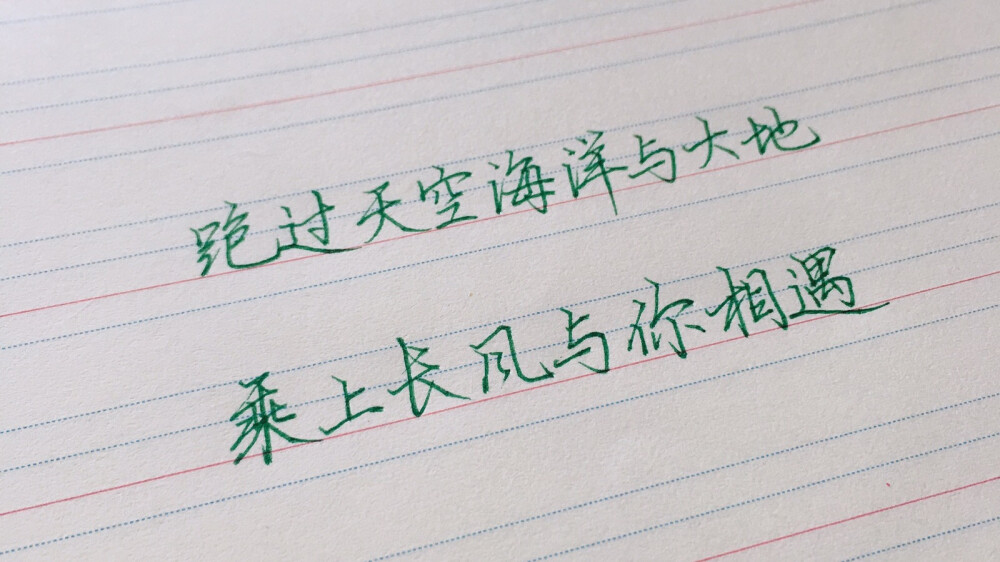 跑过天空海洋与大地
乘上长风与你相遇